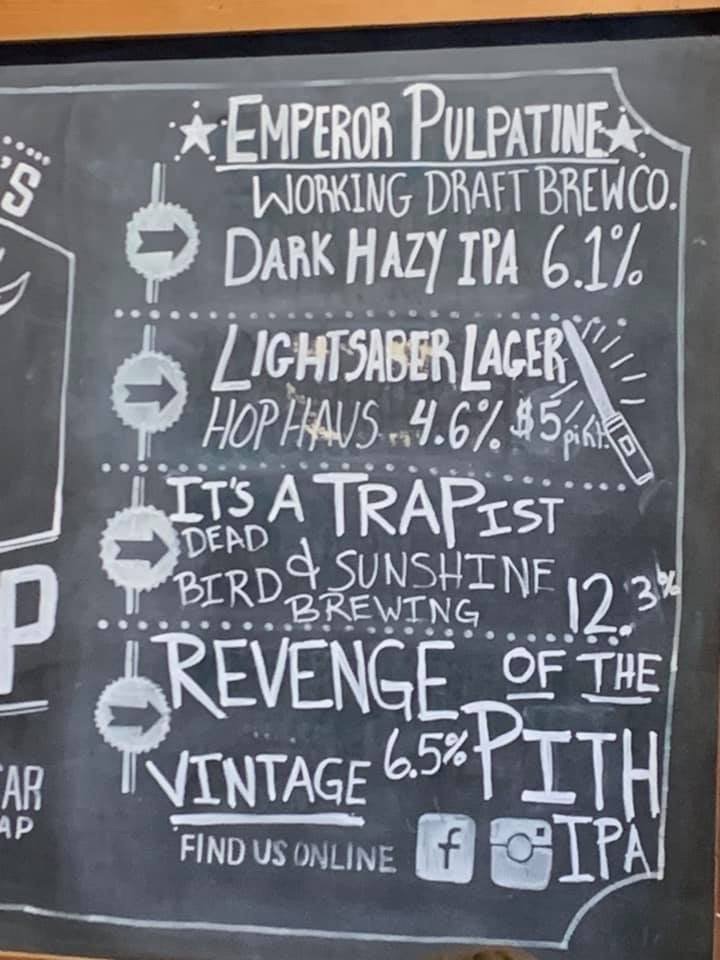 'S
P
AR
AP
EMPEROR PULPATINE
WORKING DRAFT BREW CO.
DARK HAZY IPA 6.1%
LIGHTSABER LAGER
HOP HAUS 4.6% $5 pint
IT'S A TRAPIST
DEAD
BIRD & SUNSHINE
BREWING 12.3%
REVENGE OF THE
VINTAGE 6.5% PITH
IPA
FIND US ONLINE f